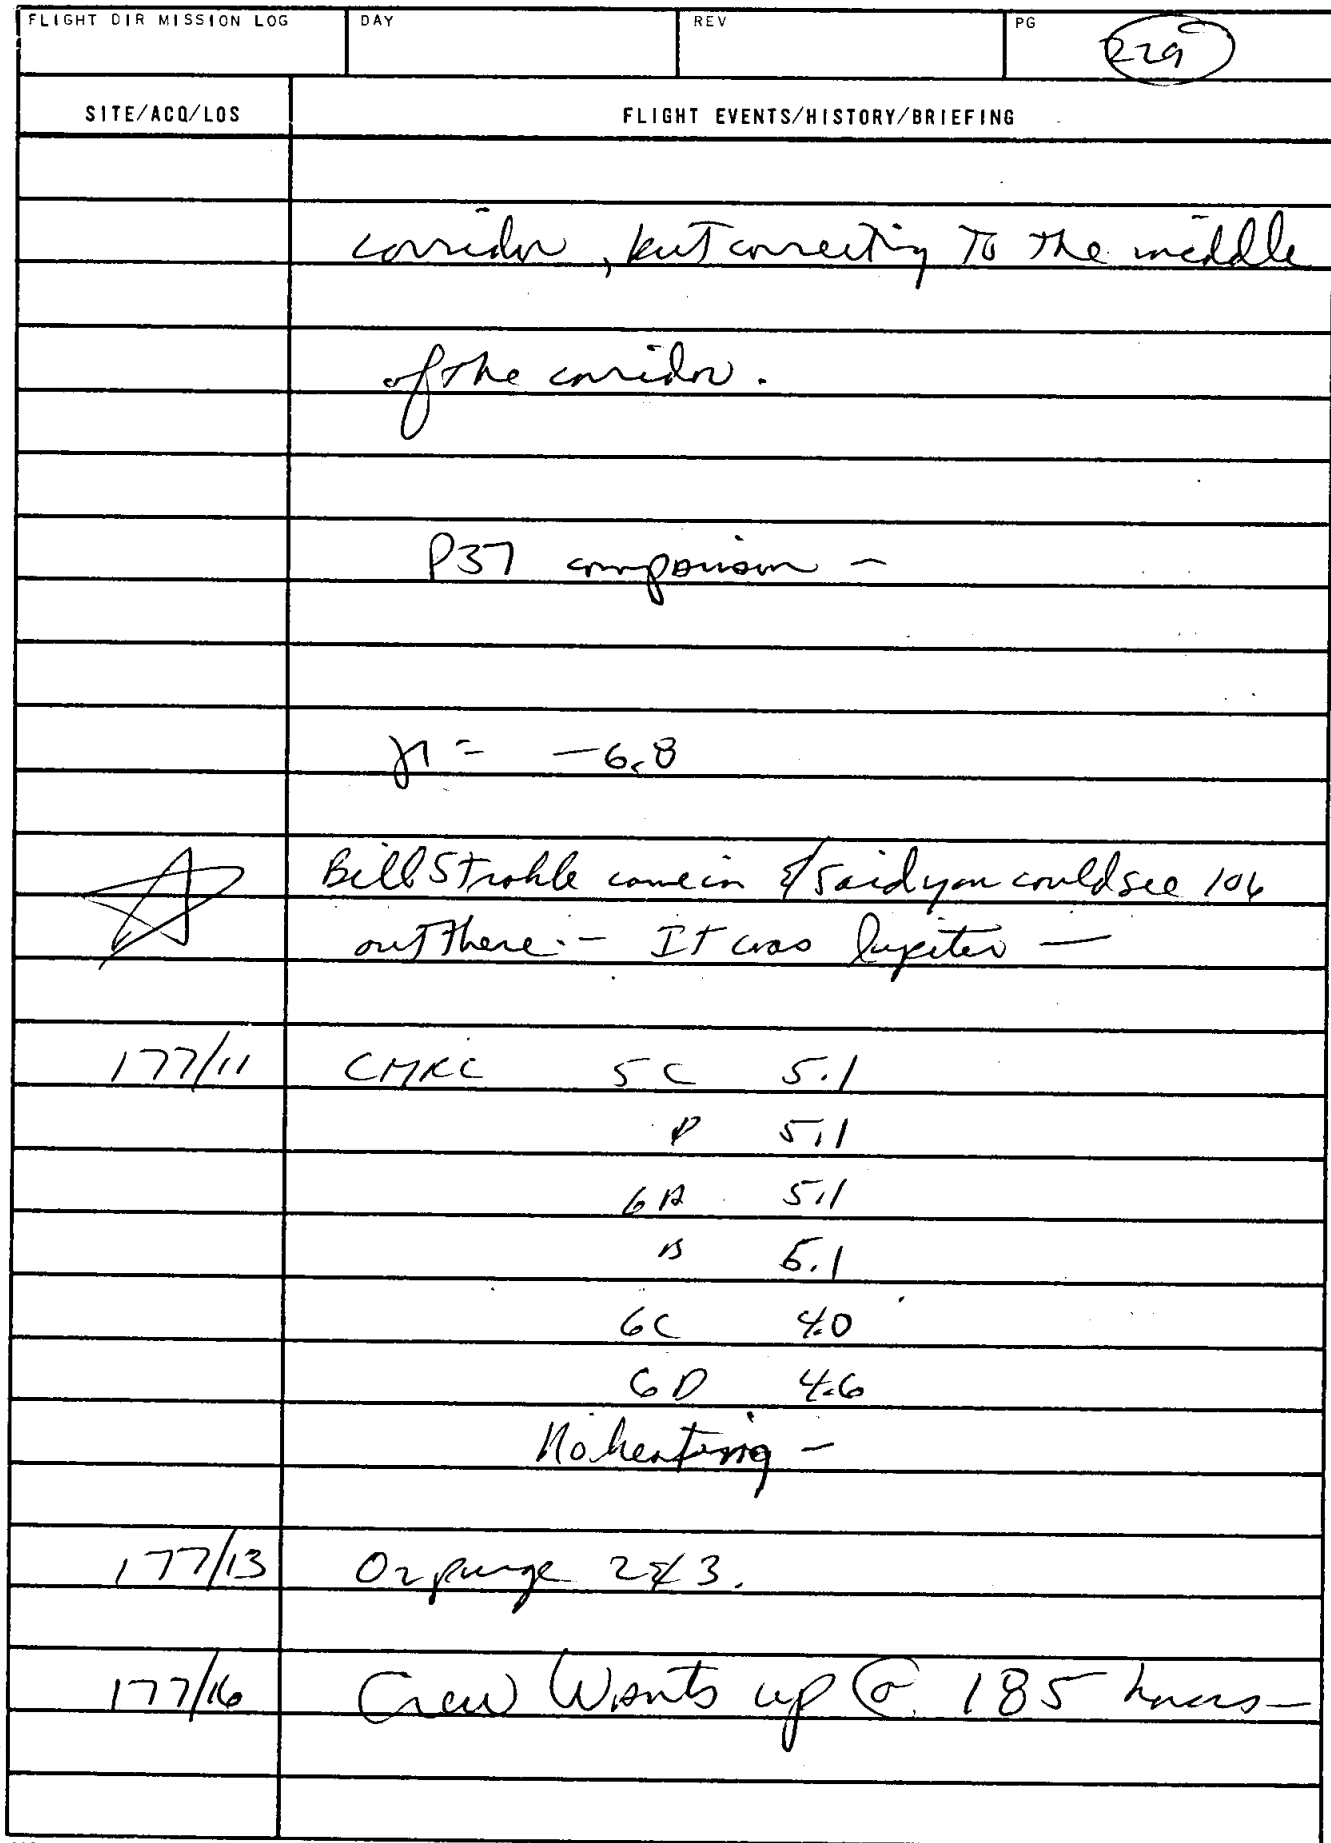 FLIGHT DIR MISSION LOG DAY REV PG 229
SITE/ACQ/LOS FLIGHT EVENTS/HISTORY/BRIEFING
corridor, but correcting to the middle
of the corridor.
P37 comparison -
= -6.8
Bill Strahle came in & said you could see 106
out there. - It was Jupiter -
177/11 5C 5.1
D 5.1
6A 5.1
B 5.1
6C 4.0
6D 4.6
No heating -
177/13 O2 purge 2 & 3.
177/16 Crew Wants up @ 185 hours -